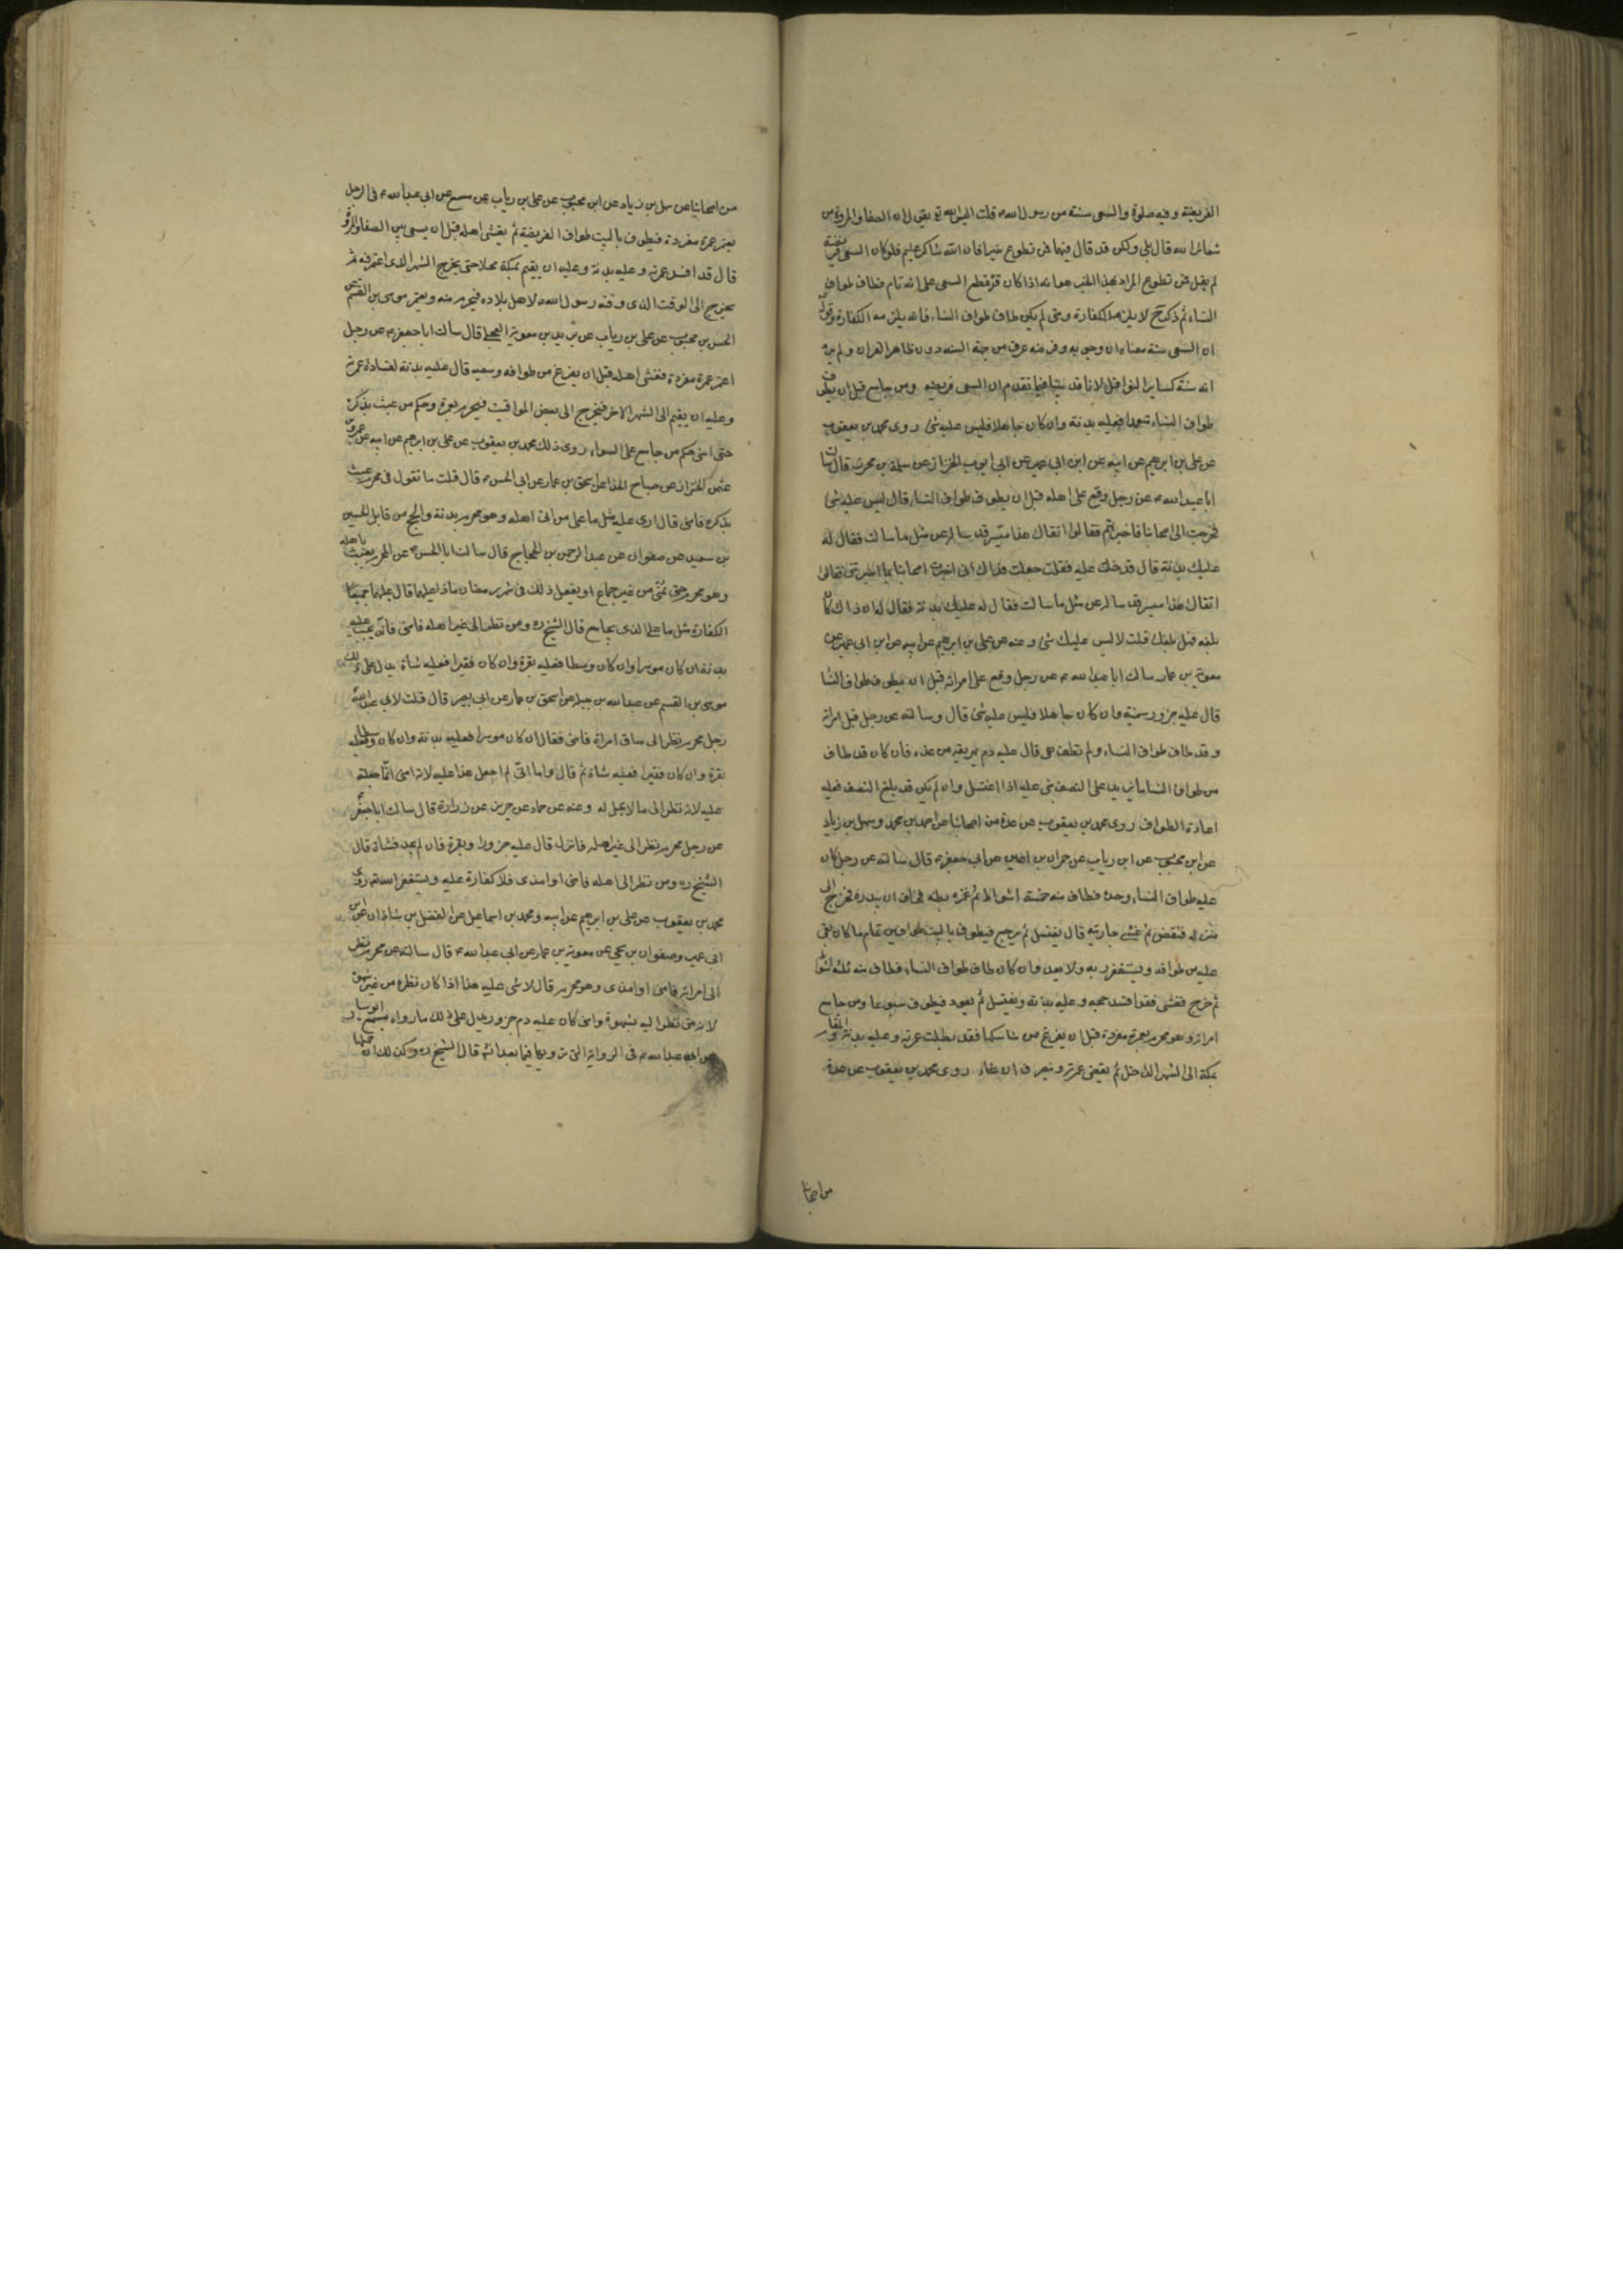 الفريضة وفيه صلوة والسعى سنة من رسول الله ص قلت اليس الله تع يقول ان الصفا والمروة من
شعائر الله قال بلى ولكن قد قال فيهما فمن تطوع خيرا فان الله شاكر عليم فلو كان السعى فريضة
لم يقل فمن تطوع المراد بهذا الخبر هو انه اذا كان قد قطع السعى على انه تام فطاف طواف
النساء ثم ذكر لا يلزمه الكفارة ومتى لم يكن طاف طواف النساء فانه يلزمه الكفارة وقوله
ان السعى سنة معناه ان وجوبه وفرضه عرف من جهة السنة دون ظاهر القران ولم يرد
انه سنة كساير النوافل لانا قد بينا فيما تقدم ان السعى فريضة ومن جامع قبل ان يطوف
طواف النساء متعمدا فعليه بدنة وان كان جاهلا فليس عليه شئ روى محمد بن يعقوب
عن على بن ابرهيم عن ابيه عن ابن ابى عمير عن ابى ايوب الخزاز عن سلمة بن محرز قال سالت
ابا عبد الله ع عن رجل وقع على اهله قبل ان يطوف طواف النساء قال ليس عليه شئ
فخرجت الى اصحابنا فاخبرتهم فقالوا اتقاك هذا ميسر قد ساله عن مثل ما سالت فقال له
عليك بدنة قال فدخلت عليه فقلت جعلت فداك انى اخبرت اصحابنا بما اخبرتنى فقالوا
اتقاك هذا ميسر قد ساله عن مثل ما سالت فقال له عليك بدنة فقال ان ذاك كان
بلغه فهل بلغك قلت لا قال ليس عليك شئ وعنه عن على بن ابرهيم عن ابيه عن ابن ابى عمير عن
معوية بن عمار سالت ابا عبد الله ع عن رجل وقع على امراته قبل ان يطوف طواف النساء
قال عليه جزور سمينة وان كان جاهلا فليس عليه شئ قال وسالته عن رجل قبل امراته
وقد طاف طواف النساء ولم تطف هى قال عليه دم يهريقه من عنده فان كان قد طاف
من طواف النساء ما يزيد على النصف بنى عليه اذا اغتسل وان لم يكن قد بلغ النصف فعليه
اعادة الطواف روى محمد بن يعقوب عن عدة من اصحابنا عن احمد بن محمد وسهل بن زياد
عن ابن محبوب عن ابن رياب عن حمران بن اعين عن ابى جعفر ع قال سالته عن رجل كان
عليه طواف النساء وحده فطاف منه خمسة اشواط ثم غمزه بطنه فخاف ان يبدره فخرج الى
منزله فنقض ثم غشى جاريته قال يغتسل ثم يرجع فيطوف بالبيت طوافين تمام ما كان بقى
عليه من طوافه ويستغفر ربه ولا يعد وان كان طاف طواف النساء فطاف منه ثلثة اشواط
ثم خرج فغشى فقد افسد حجه وعليه بدنة ويغتسل ثم يعود فيطوف سبوعا ومن جامع
امراته وهو محرم بعمرة مفردة قبل ان يفرغ من مناسكها فقد بطلت عمرته وعليه بدنة والمقام
بمكة الى الشهر الداخل ثم يقضى عمرته وينصرف ان شاء روى محمد بن يعقوب عن عدة
من اصحابنا
من اصحابنا عن سهل بن زياد عن ابن محبوب عن على بن رياب عن مسمع عن ابى عبد الله ع فى الرجل
يعتمر عمرة مفردة فيطوف بالبيت طواف الفريضة ثم يغشى اهله قبل ان يسعى بين الصفا والمروة
قال قد افسد عمرته وعليه بدنة وعليه ان يقيم بمكة محلا حتى يخرج الشهر الذى اعتمر فيه ثم
يخرج الى الوقت الذى وقته رسول الله ص لاهل بلاده فيحرم منه ويعتمر موسى بن القسم عن
الحسن بن محبوب عن على بن رياب عن بريد بن معوية العجلى قال سالت ابا جعفر ع عن رجل
اعتمر عمرة مفردة فغشى اهله قبل ان يفرغ من طوافه وسعيه قال عليه بدنة لفساد عمرته
وعليه ان يقيم الى الشهر الاخر فيخرج الى بعض المواقيت فيحرم بعمرة وحكم من عبث بذكره
حتى امنى حكم من جامع على السواء روى ذلك محمد بن يعقوب عن على بن ابرهيم عن ابيه عن عمرو بن
عثمن الخزاز عن صباح الحذاء عن اسحق بن عمار عن ابى الحسن ع قال قلت ما تقول فى محرم عبث
بذكره فامنى قال ارى عليه مثل ما على من اتى اهله وهو محرم بدنة والحج من قابل الحسين
بن سعيد عن صفوان عن عبد الرحمن بن الحجاج قال سالت ابا الحسن ع عن المحرم يعبث باهله
وهو محرم حتى يمنى من غير جماع او يفعل ذلك فى شهر رمضان ماذا عليهما قال عليهما جميعا
الكفارة مثل ما على الذى يجامع قال الشيخ ره ومن نظر الى غير اهله فامنى فانه يجب عليه
بدنة ان كان موسرا وان كان وسطا فعليه بقرة وان كان فقيرا فعليه شاة يدل على ذلك
موسى بن القسم عن عبد الله بن جبلة عن اسحق بن عمار عن ابى بصير قال قلت لابى عبد الله
رجل محرم نظر الى ساق امراة فامنى فقال ان كان موسرا فعليه بدنة وان كان وسطا فعليه
بقرة وان كان فقيرا فعليه شاة ثم قال واما انى لم اجعل هذا عليه لانه امنى انما جعلته
عليه لانه نظر الى ما لا يحل له وعنه عن حماد عن حريز عن زرارة قال سالت ابا جعفر
عن رجل محرم نظر الى غير اهله فانزل قال عليه جزور او بقرة فان لم يجد فشاة قال
الشيخ ره ومن نظر الى اهله فامنى او امذى فلا كفارة عليه ويستغفر الله تع روى
محمد بن يعقوب عن على بن ابرهيم عن ابيه ومحمد بن اسماعيل عن الفضل بن شاذان عن ابن
ابى عمير وصفوان بن يحيى عن معوية بن عمار عن ابى عبد الله ع قال سالته عن محرم نظر
الى امراته فامنى او امذى وهو محرم قال لا شئ عليه هذا اذا كان نظره من غير شهوة
لانه متى نظر اليه بشهوة وامنى كان عليه دم جزور يدل على ذلك ما رواه مسمع ابو سيار
عن ابى عبد الله ع فى الرواية التى نرويها فيما بعد انش قال الشيخ ره وكذلك ان